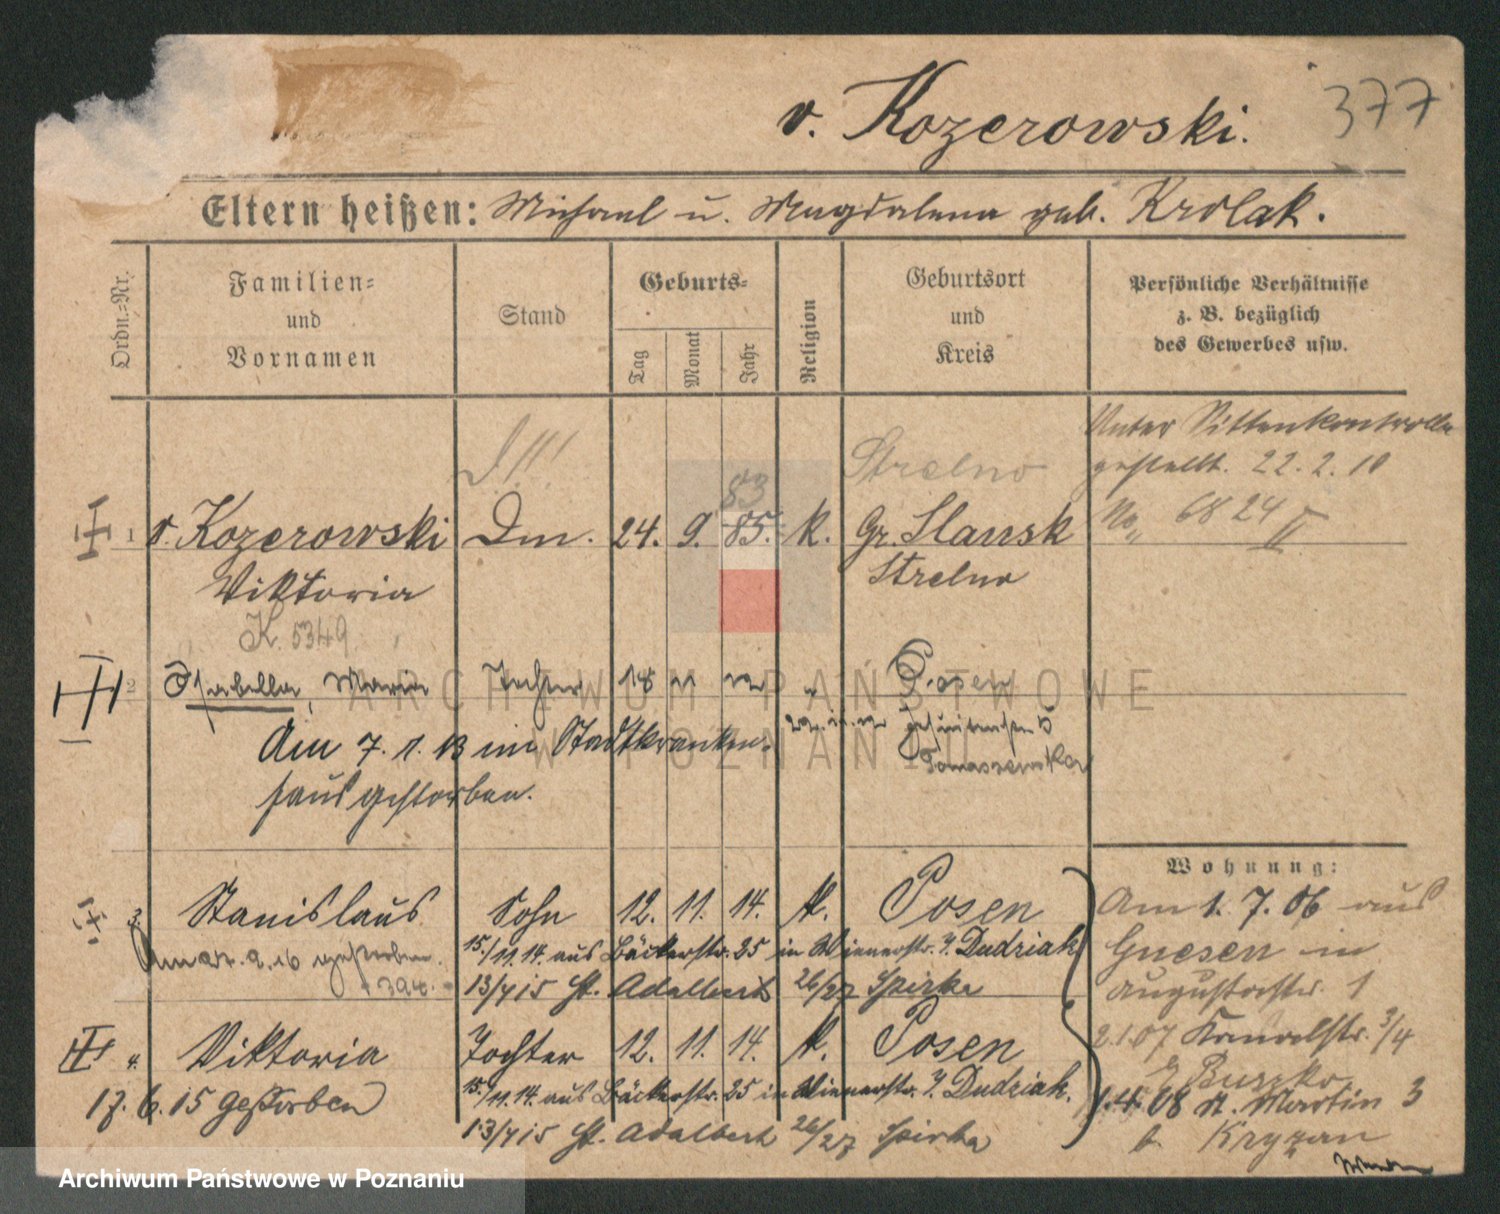 v. Kozerowski.
377
Eltern heißen: Michael u. Magdalena geb. Krolak.
Ordn.-Nr.
Familien-
und
Vornamen
Stand
Geburts-
Tag
Monat
Jahr
Religion
Geburtsort
und
Kreis
Persönliche Verhältnisse
z. B. bezüglich
des Gewerbes usw.
Unter Sittenkontrolle
Strelno
gestellt. 22. 2. 10
83
No. 6824 II
1 v. Kozerowski Dm. 24. 9. 85. k. Gr. Slawsk
Viktoria Strelno
K. 5349
2 Isabella, Maria Tochter 18 11 12 Posen
Am 7. 1. 13 im Stadtkranken-
haus gestorben.
Tomaszewska
Wohnung:
3. Stanislaus Sohn 12. 11. 14. k. Posen
Am 1. 7. 06 aus
Gnesen in
Augustastr. 1
gestorben.
15/11.14. aus Bäckerstr. 25 in Wienerstr. 7. Dudziak
13/7 15 St. Adalbert 26/27 Spirka
4. Viktoria Tochter 12. 11. 14. k. Posen
2.1.07 3/4
b Buszko
17. 6. 15 gestorben
15/11.14. aus Bäckerstr. 25 in Wienerstr. 7. Dudziak.
1.4.08 St. Martin 3
13/7 15 St. Adalbert 26/27 Spirka
b. Kryzan
ARCHIWUM PAŃSTWOWE
W POZNANIU
Archiwum Państwowe w Poznaniu